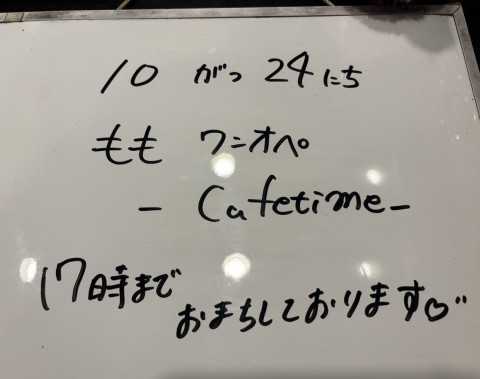 10 がつ 24にち
もも ワンオペ
- Cafetime -
17時まで
おまちしております♡"